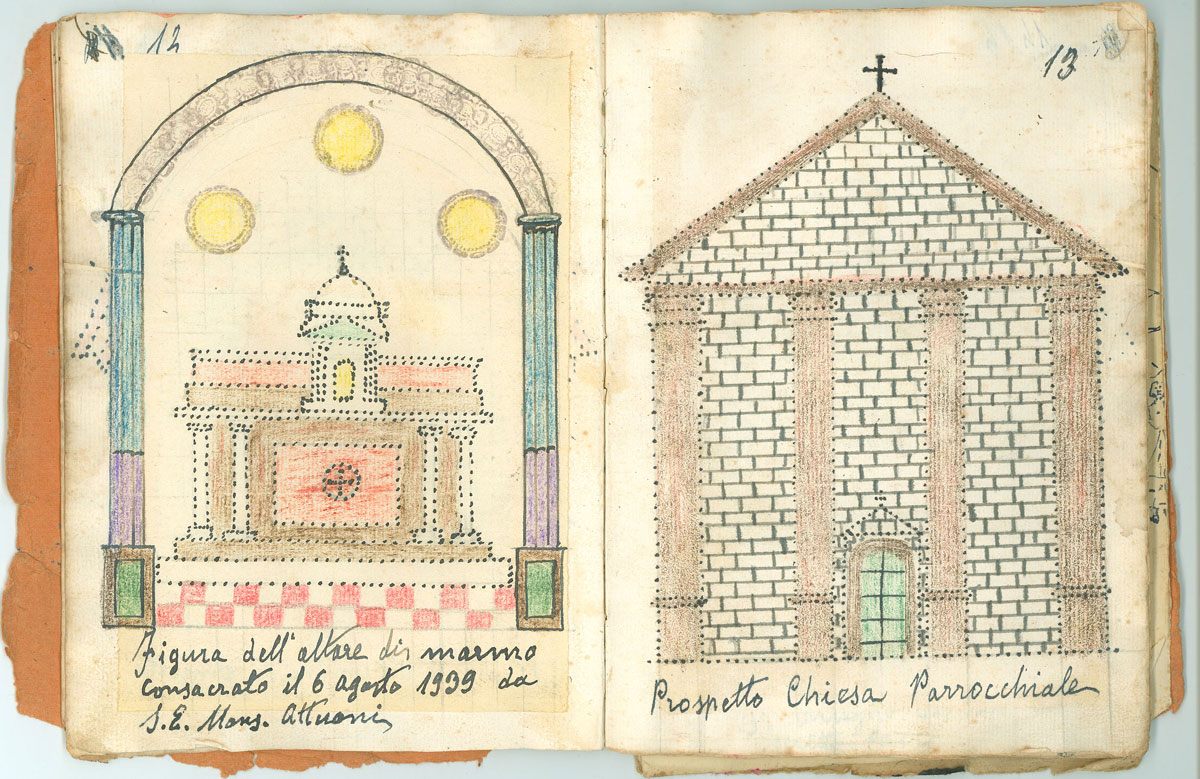 12
Figura dell'altare di marmo
consacrato il 6 agosto 1939 da
S.E. Mons. Attuoni
13
Prospetto Chiesa Parrocchiale